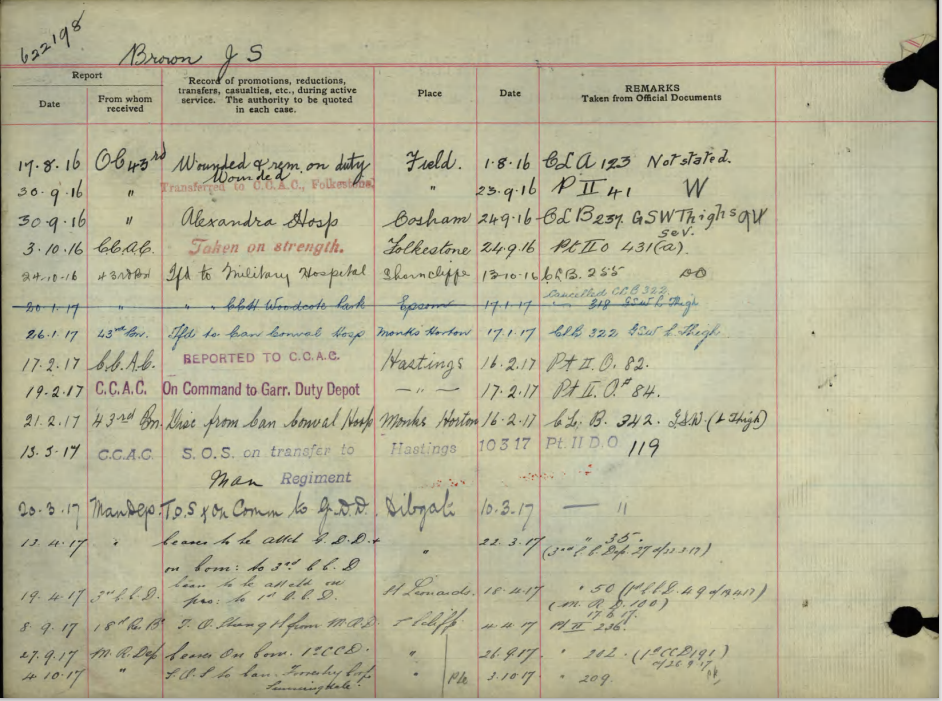 622198
Brown J S
Report
Date
From whom received
Record of promotions, reductions, transfers, casualties, etc., during active service. The authority to be quoted in each case.
Place
Date
REMARKS
Taken from Official Documents
17.8.16 OC 43rd Wounded & rem. on duty Field. 1.8.16 CL A 123 Not stated.
30.9.16 " Wounded " 23.9.16 P II 41 W
Transferred to C.C.A.C., Folkestone,
30.9.16 " Alexandra Hosp Cosham 24.9.16 CL B 237 GSW Thighs
sev.
3.10.16 C.C.A.C. Taken on strength. Folkestone 24.9.16 Pt II O 431(a).
24.10.16 43rd Bn Tfd to Military Hospital Shorncliffe 13.10.16 CLB. 255
Cancelled CLB 322.
20.1.17 " " CCH Woodcote Park Epsom 17.1.17 318 GSW L Thigh
26.1.17 43rd Bn. Tfd to Can Conval Hosp Monks Horton 17.1.17 CLB 322 GSW L Thigh
17.2.17 C.C.A.C. REPORTED TO C.C.A.C. Hastings 16.2.17 Pt II. O. 82.
19.2.17 C.C.A.C. On Command to Garr. Duty Depot — " — 17.2.17 Pt II. O. 84.
21.2.17 43rd Bn. Disc from Can Conval Hosp Monks Horton 16.2.17 CL. B. 342. G.S.W. (L Thigh)
13.3.17 C.C.A.C. S.O.S. on transfer to Hastings 10 3 17 Pt. II D.O 119
Man Regiment
20.3.17 Man Dep. T.O.S & on Comm to G.D.D. Dibgate 10.3.17 — 11
13.4.17 " Ceases to be attd G.D.D. & " 22.3.17 " 35.
on Com: to 3rd C.C.D
19.4.17 3rd C.C.D. ceases to be attd on St Leonards 18.4.17 " 50
pro: to 1st C.C.D. (M.R.D. 100)
17.6.17.
8.9.17 18th Res Bn T.O. Strength from M.R.D. 4.4.17 Pt II 236.
27.9.17 M.R. Dep Ceases On Com. 1st CCD. " 26.9.17 " 202. (1st CCD 191)
4.10.17 " S.O.S to Can. Forestry Corps " 3.10.17 " 209.
Sunningdale.